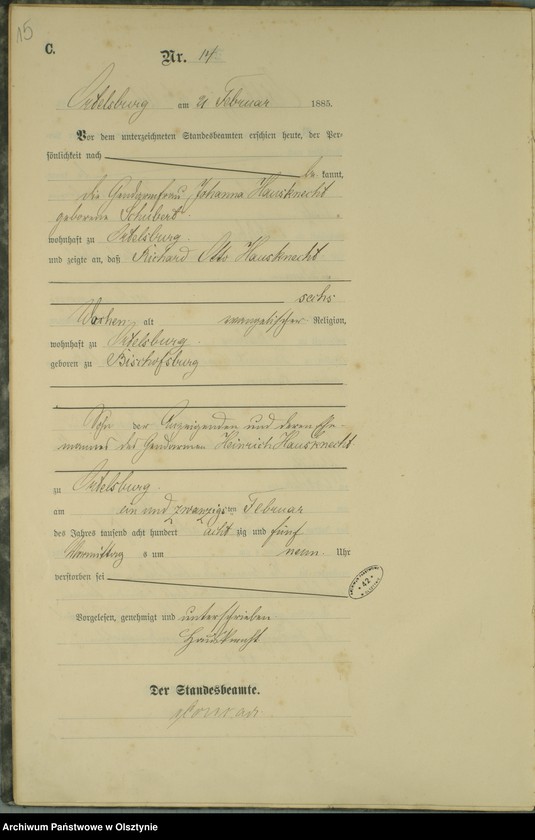 15
C.
Nr. 14
Ortelsburg am 21 Februar 1885.
Vor dem unterzeichneten Standesbeamten erschien heute, der Per-
sönlichkeit nach
be kannt,
die Gendarmfrau Johanna Hausknecht
geborene Schubert
wohnhaft zu Ortelsburg.
und zeigte an, daß Richard Otto Hausknecht
sechs
Wochen alt evangelischer Religion,
wohnhaft zu Ortelsburg.
geboren zu Bischofsburg
Sohn der Anzeigenden und deren Ehe-
mannes des Gendarmen Heinrich Hausknecht
zu Ortelsburg.
am ein und zwanzigsten Februar
des Jahres tausend acht hundert acht zig und fünf
Vormittag s um neun Uhr
verstorben sei
42
Vorgelesen, genehmigt und unterschrieben
Hausknecht
Der Standesbeamte.
Archiwum Państwowe w Olsztynie